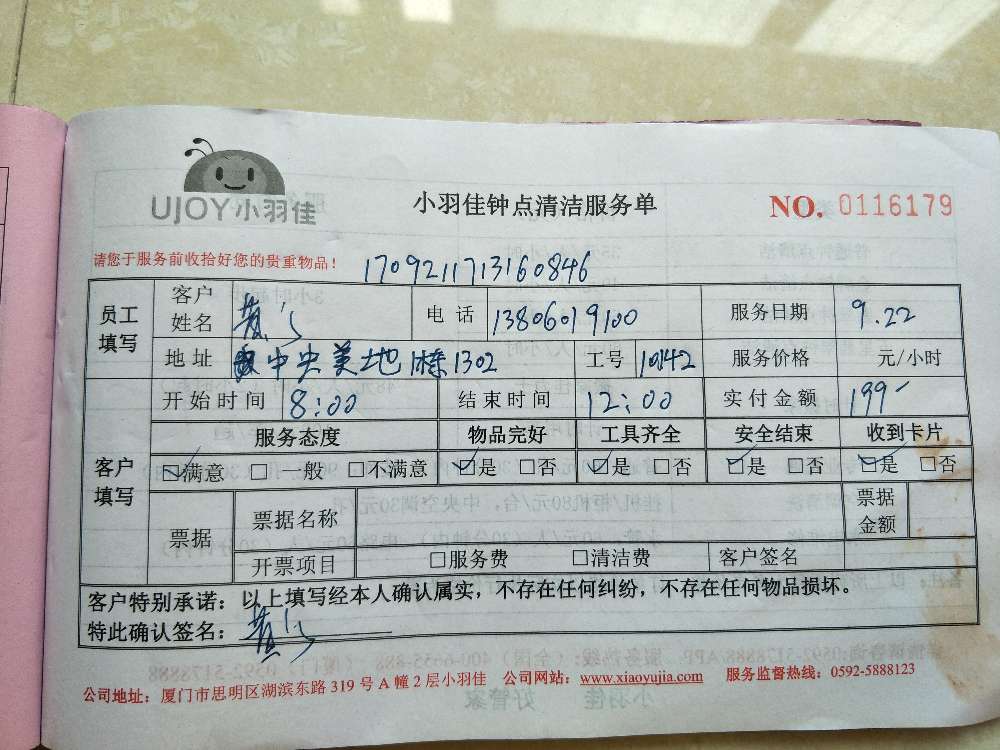 UJOY小羽佳
小羽佳钟点清洁服务单
NO. 0116179
请您于服务前收拾好您的贵重物品！
1709211713160846
员工填写 客户姓名 黄 电话 13806019100 服务日期 9.22
地址 中央美地1栋1302 工号 10142 服务价格 元/小时
客户填写 开始时间 8:00 结束时间 12:00 实付金额 199
服务态度 物品完好 工具齐全 安全结束 收到卡片
☑满意 □一般 □不满意 ☑是 □否 ☑是 □否 ☑是 □否 ☑是 □否
票据 票据名称 票据金额
开票项目 □服务费 □清洁费 客户签名
客户特别承诺：以上填写经本人确认属实，不存在任何纠纷，不存在任何物品损坏。
特此确认签名：黄
公司地址：厦门市思明区湖滨东路 319 号 A 幢 2 层小羽佳 公司网站：www.xiaoyujia.com 服务监督热线：0592-5888123